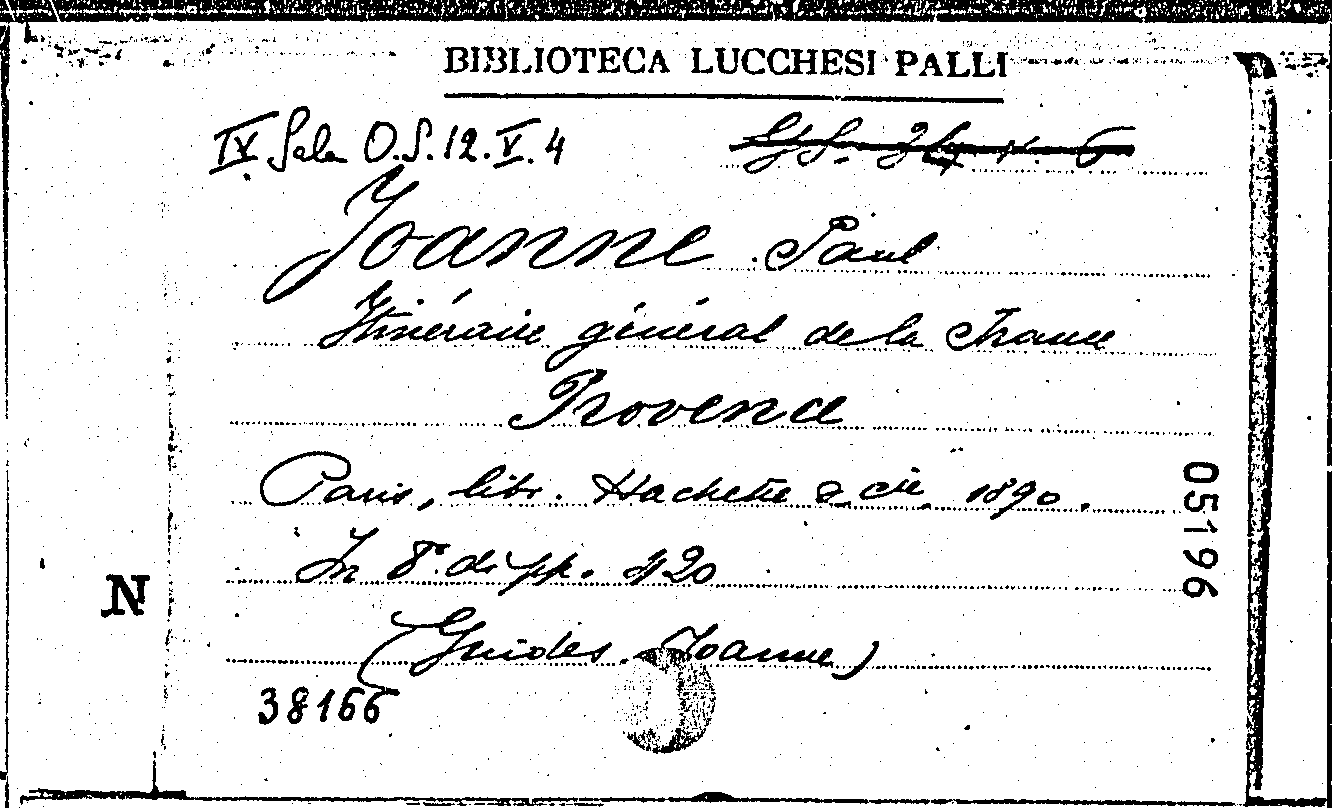 BIBLIOTECA LUCCHESI PALLI
IV Sala O.S. 12. V. 4
Joanne Paul
Itinéraire général de la France
Provence
Paris, libr. Hachette & cie, 1890.
In 8º di pp. 420
(Guides Joanne)
38166
N
05196